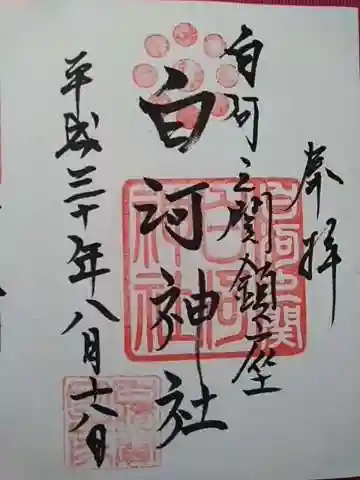 奉拝
白河之関鎮座
白河神社
平成三十年八月十八日
白河之関
白河
神社